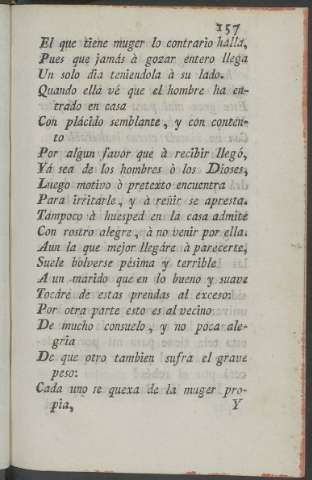 157
El que tiene muger lo contrario halla,
Pues que jamás à gozar entero llega
Un solo dia teniendola à su lado.
Quando ella vé que el hombre ha en-
trado en casa
Con plácido semblante, y con conten-
to
Por algun favor que à recibir llegó,
Yá sea de los hombres ò los Dioses,
Luego motivo ò pretexto encuentra
Para irritarle, y à reñir se apresta.
Tampoco à huesped en la casa admite
Con rostro alegre, à no venir por ella.
Aun la que mejor llegáre à parecerte,
Suele bolverse pésima y terrible
A un marido que en lo bueno y suave
Tocáre de estas prendas al exceso:
Por otra parte esto es al vecino
De mucho consuelo, y no poca ale-
gria
De que otro tambien sufra el grave
peso:
Cada uno se quexa de la muger pro-
pia, Y